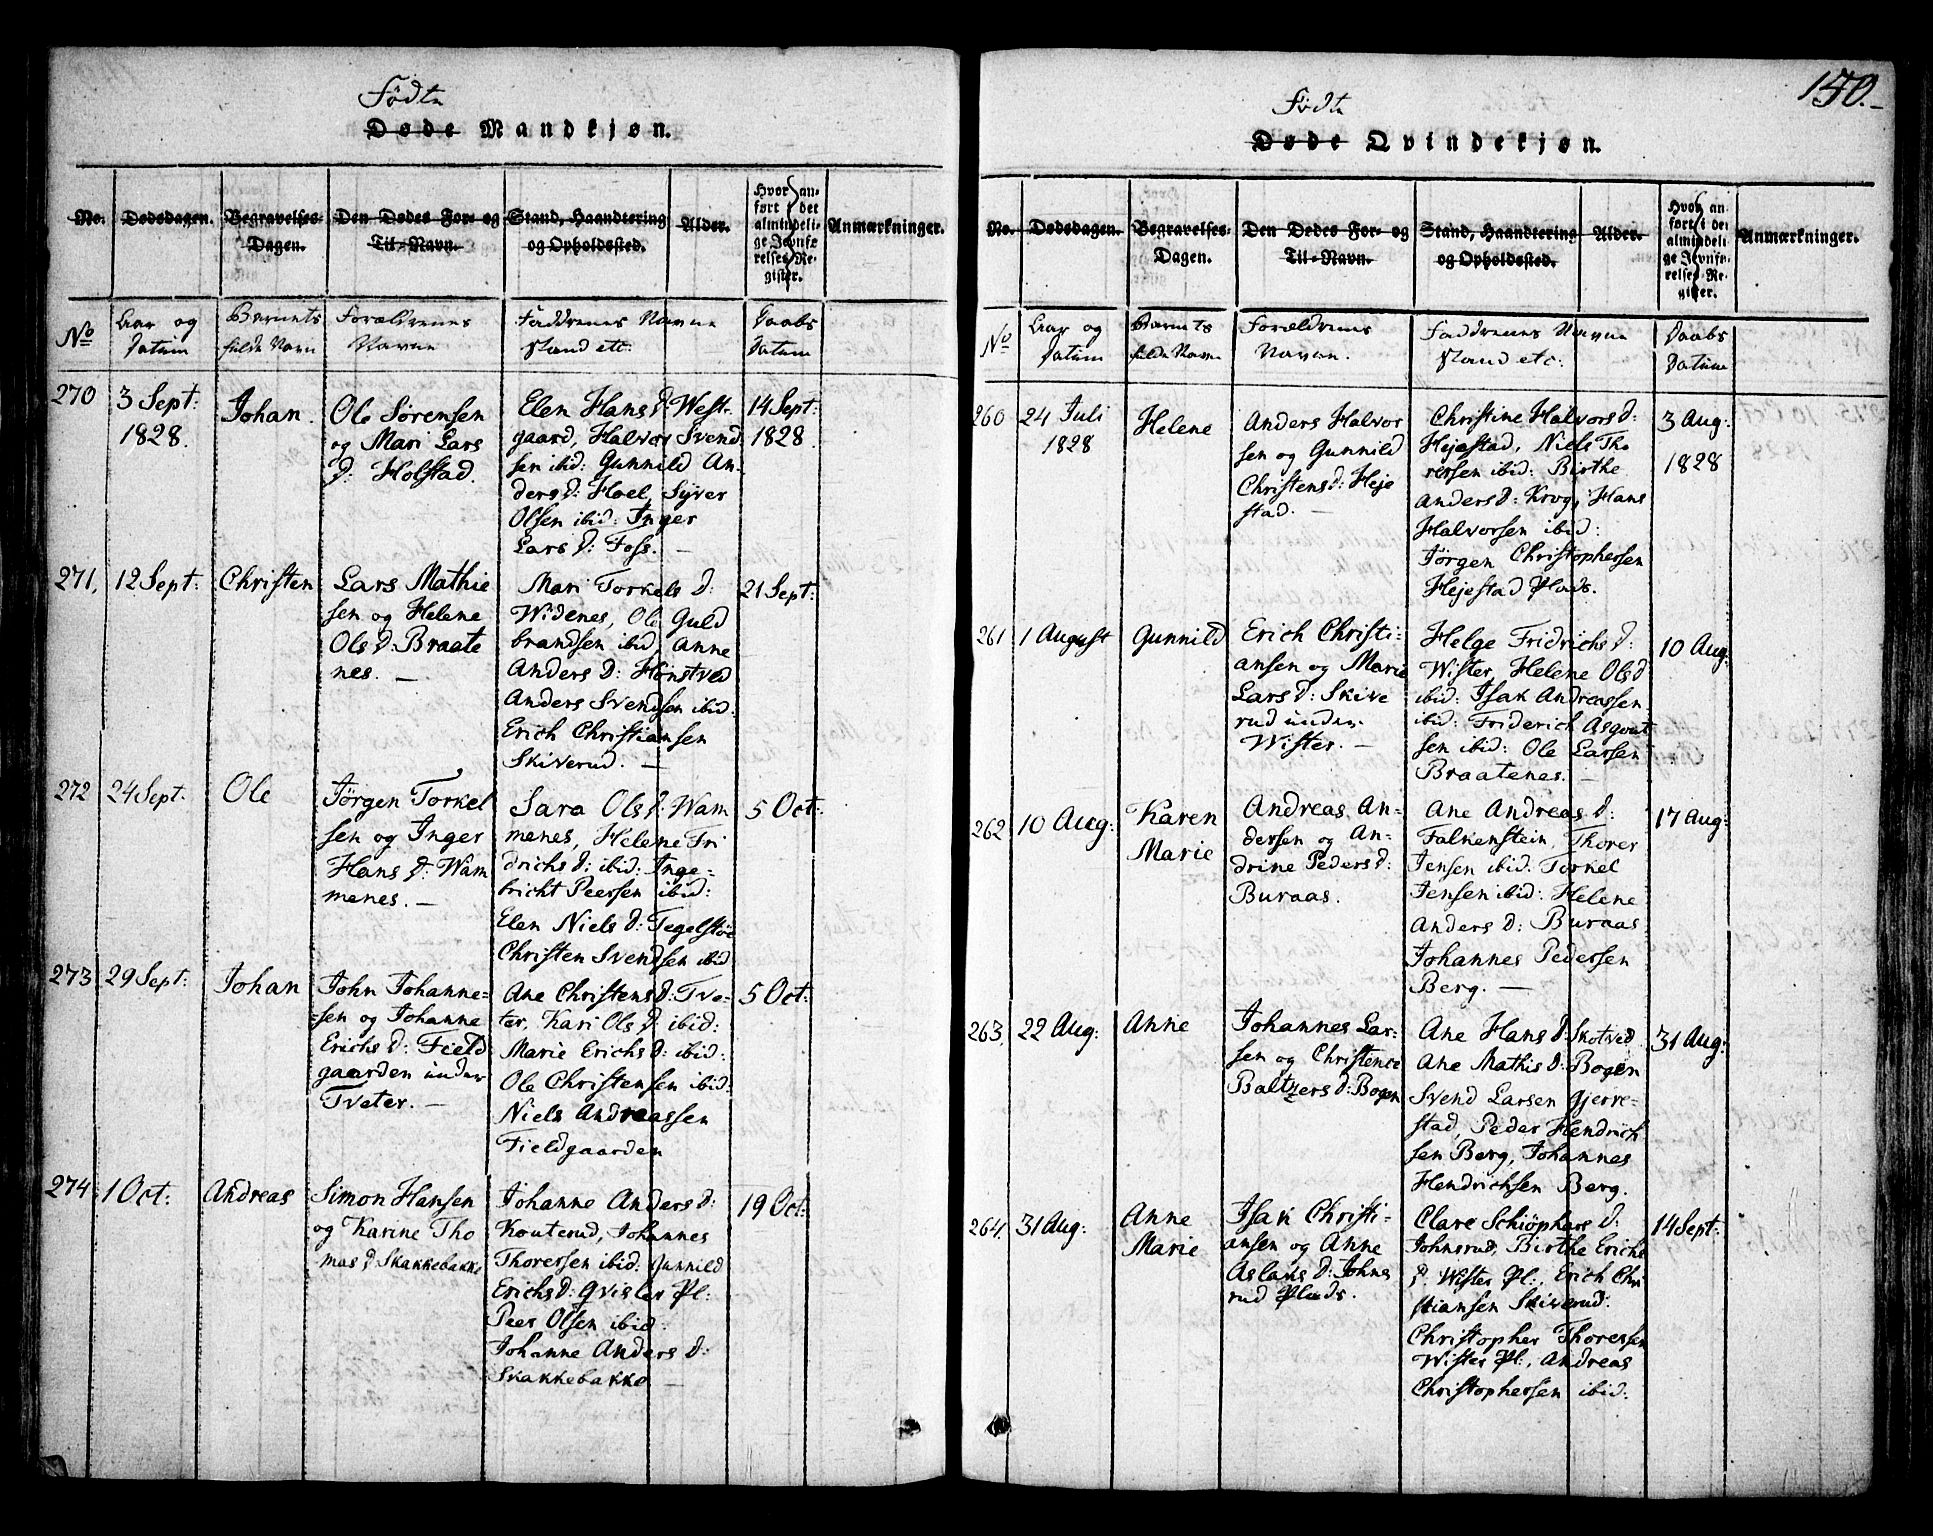 Fødte
Døde Mandkjøn.
No. Dødsdagen. Begravelses-Dagen. Den Dødes For- og Til-Navn. Stand, Haandtering og Opholdssted. Alder. Hvor anført i det almindelige Jevnførelses-Register. Anmærkninger.
No Aar og Datum Barnets fulde Navn Forældrenes Navne Faddrenes Navne Stand etc. Daabs Datum
270 3 Sept: 1828. Johan.
Ole Sørensen
og Mari Lars
D: Holstad.
Elen Hans D: West-
gaard, Halvor Svend
sen ibid: Gunnild An-
ders D: Hoel, Syver
Olsen ibid: Inger
Lars D: Foss. —
14 Sept: 1828.
271, 12 Sept: Christen
Lars Mathie
sen og Helene
Ols D: Braate
nes. —
Mari Torkels D:
Widenes, Ole Guld
brandsen ibid, Anne
Anders D: Honstved
Anders Svendsen ibid:
Erich Christiansen
Skiverud. —
21 Sept:
272 24 Sept. Ole
Jørgen Torkel
sen og Inger
Hans D: Wam
menes. —
Sara Ols D: Wam
menes, Helene Fri
drichs D: ibid: Inge-
bricht Peersen ibid:
Elen Niels D: Tegelstøe
Christen Svendsen ibid
5 Oct:
273 29 Sept: Johan
John Johanne-
sen og Johanne
Erichs D: Field
gaarden under
Tveter. —
Ane Christens D: Tve-
ter, Kari Ols D: ibid:
Marie Erichs D: ibid:
Ole Christensen ibid:
Niels Andreassen
Fieldgaarden
5 Oct:
274 1 Oct: Andreas
Simon Hansen
og Karine Tho
mas D: Skakkebakke
Johanne Anders D:
Kouterud, Johannes
Thoressen ibid: Gunnild
Erichs D: Gvisler Pl:
Peer Olsen ibid:
Johanne Anders D:
Skakkebakke —
19 Oct:
150.-
Fødte
Døde Qvindekjøn.
No. Dødsdagen. Begravelses-Dagen. Den Dødes For- og Til-Navn. Stand, Haandtering og Opholdssted. Alder. Hvor anført i det almindelige Jevnførelses-Register. Anmærkninger.
No Aar og Datum Barnets fulde Navn Forældrenes Navne. Faddrenes Navne Stand etc: Daabs Datum
260 24 Juli 1828 Helene
Anders Halvor
sen og Gunnild
Christens D: Heje
stad. —
Christine Halvors D:
Hejestad, Niels Tho
rersen ibid: Birthe
Anders D: Krog, Hans
Halvorsen ibid:
Jørgen Christophersen
Hejestad Plads.
3 Aug: 1828
261 1 August Gunnild
Erich Christi-
ansen og Marie
Lars D: Skive
rud under
Wister. —
Helge Fridrichs D:
Wister, Helene Ols D
ibid: Isak Andreassen
ibid: Friderich Asgout
sen ibid: Ole Larsen
Braatenes. —
10 Aug:
262 10 Aug: Karen Marie
Andreas An-
dersen og An-
drine Peders D:
Buraas.
Ane Andreas D:
Falkenstein, Thorer
Jensen ibid: Torkel
Jensen ibid: Helene
Anders D: Buraas
Johannes Pedersen
Berg. —
17 Aug:
263. 22 Aug: Anne
Johannes Lar-
sen og Christence
Baltzers D: Bogen
Ane Hans D: Skotved
Ane Mathis D: Bogen
Svend Larsen Gjerre-
stad, Peder Hendrich
sen Berg, Johannes
Hendrichsen Berg.
31 Aug:
264. 31 Aug: Anne Marie
Isak Christi-
ansen og Anne
Aslaks D: Johns
rud Plads.
Clare Schiøphars D:
Johnsrud, Birthe Erichs
D. Wister Pl:, Erich Chri
stiansen Skiverud:
Christopher Thoressen
Wister Pl:, Andreas
Christophersen ibid:
14 Sept: